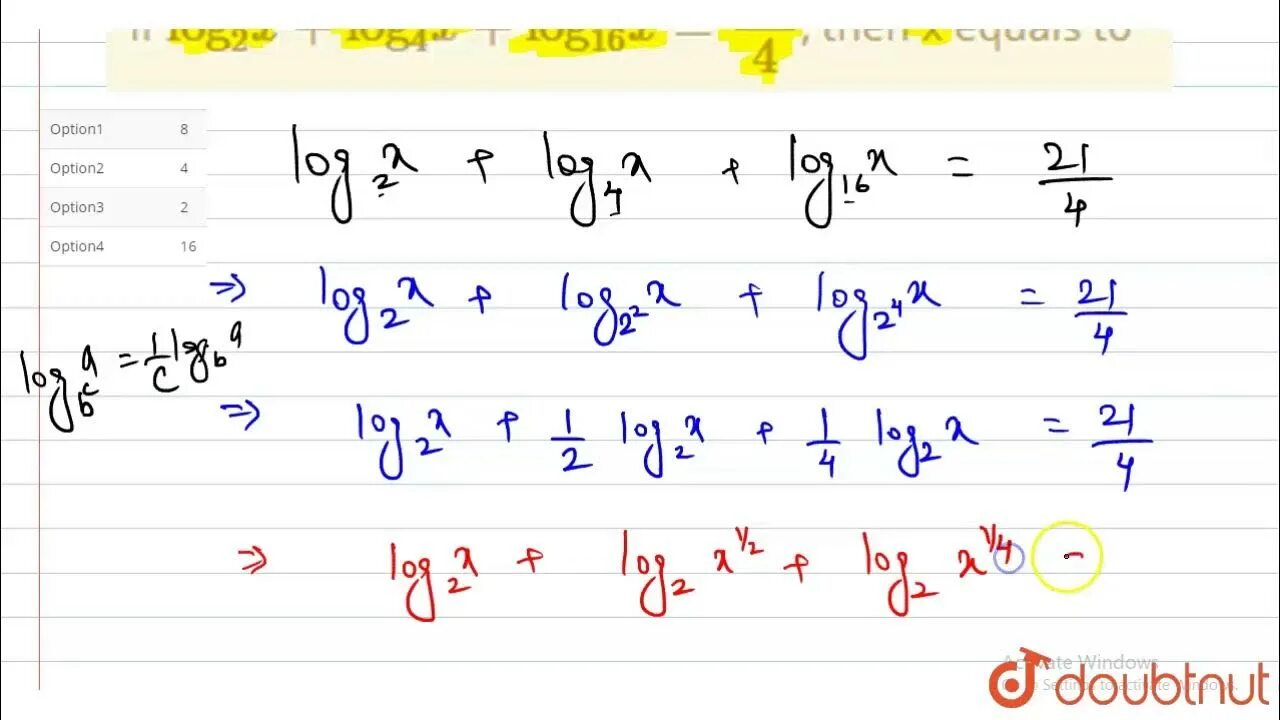 If log₂x + log₄x + log₁₆x = 4, then x equals to
Option1 8
Option2 4
Option3 2
Option4 16
log₂x + log₄x + log₁₆x = 21/4
⇒ log₂x + log_{2²}x + log_{2⁴}x = 21/4
log_{b^c} a = 1/c log_b a
⇒ log₂x + 1/2 log₂x + 1/4 log₂x = 21/4
⇒ log₂x + log₂ x^{1/2} + log₂ x^{1/4} -
Activate Windows
Go to Settings to activate Windows.
doubtnut